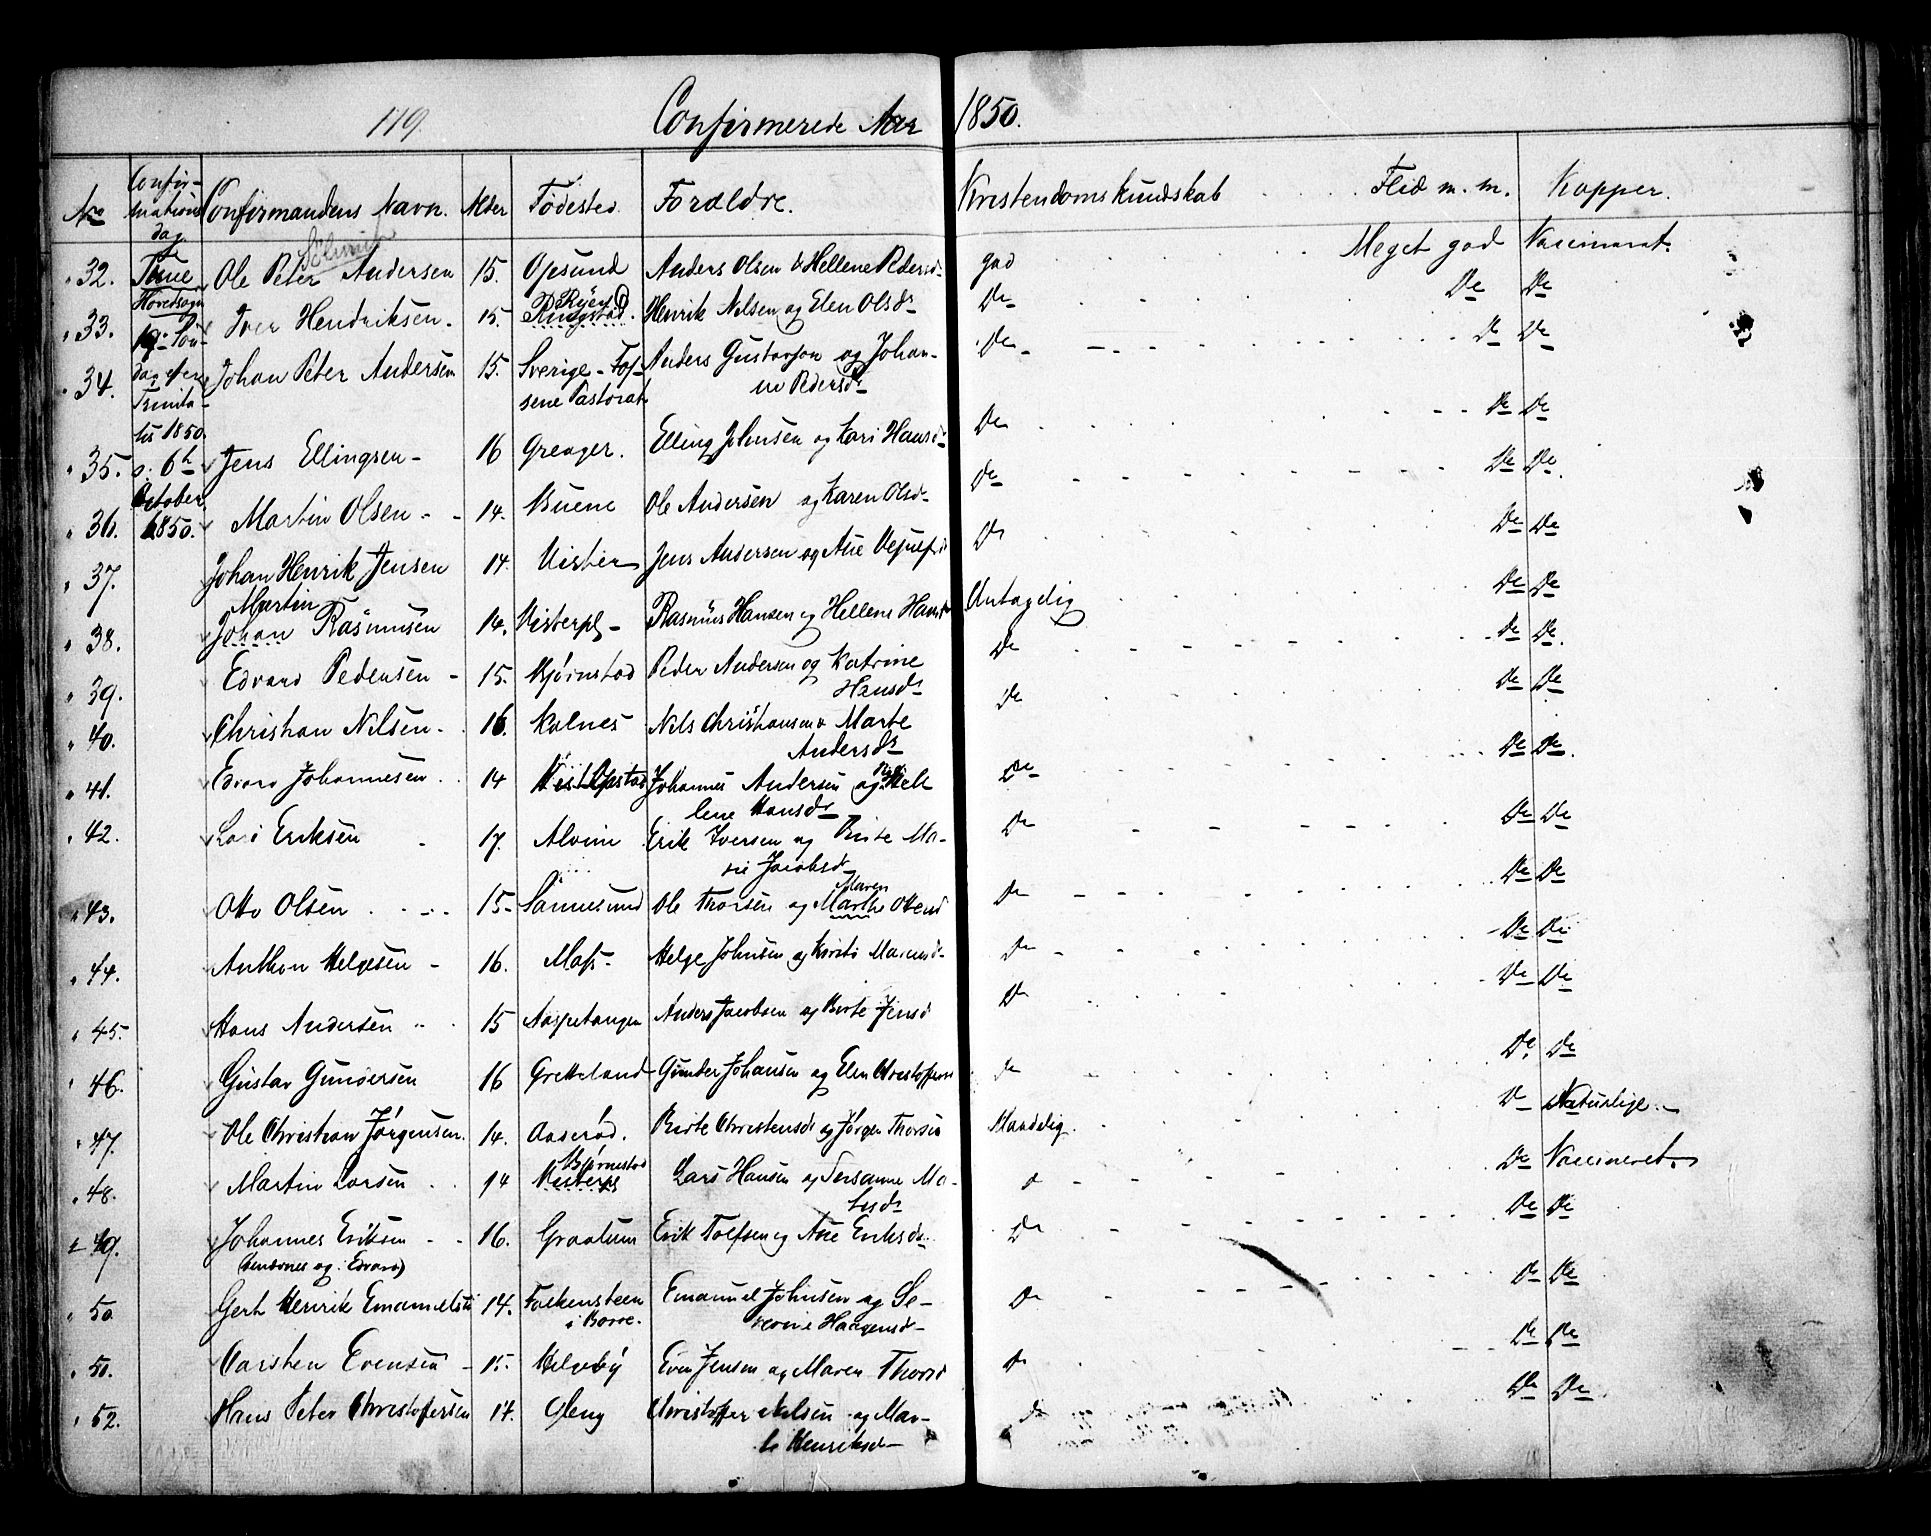 119. Confirmerede Aar 1850.
No Confirmations dag Confirmandens Navn. Alder Fødested. Forældre. Kristendomskundskab Flid m. m. Kopper.
Tune Hovedsogn 19de Søndag efter Trinitatis 1850. d. 6te October 1850.
32. Ole Peter Andersen 15. Opsund Anders Olsen & Hellene Pedersd. god Meget god Vaccineret.
33. Iver Hendriksen. 15. Ryen Ringstad. Henrik Nilsen og Elen Olsdr Do Do Do
34. Johan Peter Andersen 15. Sverige - Fos- Anders Gustavson og Johan- Do Do Do
sene Pastorat ne Pedersdr
35. Jens Ellingsen 16 Greager. Elling Johnsen og Kari Hansdr Do Do Do
36. Martin Olsen 14. Buene Ole Andersen og Karen Olsdr Do Do Do
37. Johan Henrik Jensen 14. Vister Jens Andersen og Ane Do Do Do
Martin
38. Johan Rasmusen 14. Visterpl Rasmus Hansen og Hellene Hansdr Antagelig Do Do
39. Edvard Pedersen 15. Bjørnstad Peder Andersen og Katrine Do Do Do
Hansdr
40. Christian Nilsen 16. Kalnes Nils Christiansen & Marte Do Do Do
Andersdr
41. Edvard Johannesen 14 Opstad Johannes Andersen og Hel- Do Do Do
lene Hansdr
42. Lars Eriksen 17. Alvim Erik Iversen og Birte Ma- Do Do Do
rie Jacobsdr
Maren
43. Otto Olsen 15 Sannesund Ole Thorsen og Marthe Olsend Do Do Do
44. Anthon Helgesen 16. Moss. Helge Johnsen og Kirsti Do Do Do
45. Hans Andersen 15 Aaspetangen Anders Jacobsen og Birte Jensd Do Do Do
46. Gustav Gundersen 16 Gretteland Gunder Johansen og Elen Christoffersd Do Do Do
47. Ole Christian Jørgensen. 14. Aaserød. Birte Christensdr og Jørgen Thorsen Maadelig. Do Naturlige.
Bjørnestad
48. Martin Larsen 14 Visterpl Lars Hansen og Susanne Ma- Do Do Vaccineret.
tisdr
49. Johannes Eriksen 16. Graalum Erik Tolfsen og Ane Eriksdr. Do Do Do
(benævnes og: Edvard)
50. Gert Henrik Emanuelsen 14. Falkensteen Emanuel Johnsen og Se- Do Do Do
i Borre. verine Haagensdr
50. Carsten Evensen 15. Helgeby Even Jensen og Maren Thorsd Do Do Do
52. Hans Peter Christoffersen 14. Gleng Christoffer Nilsen og Mar- Do Do Do
te Henriksdr